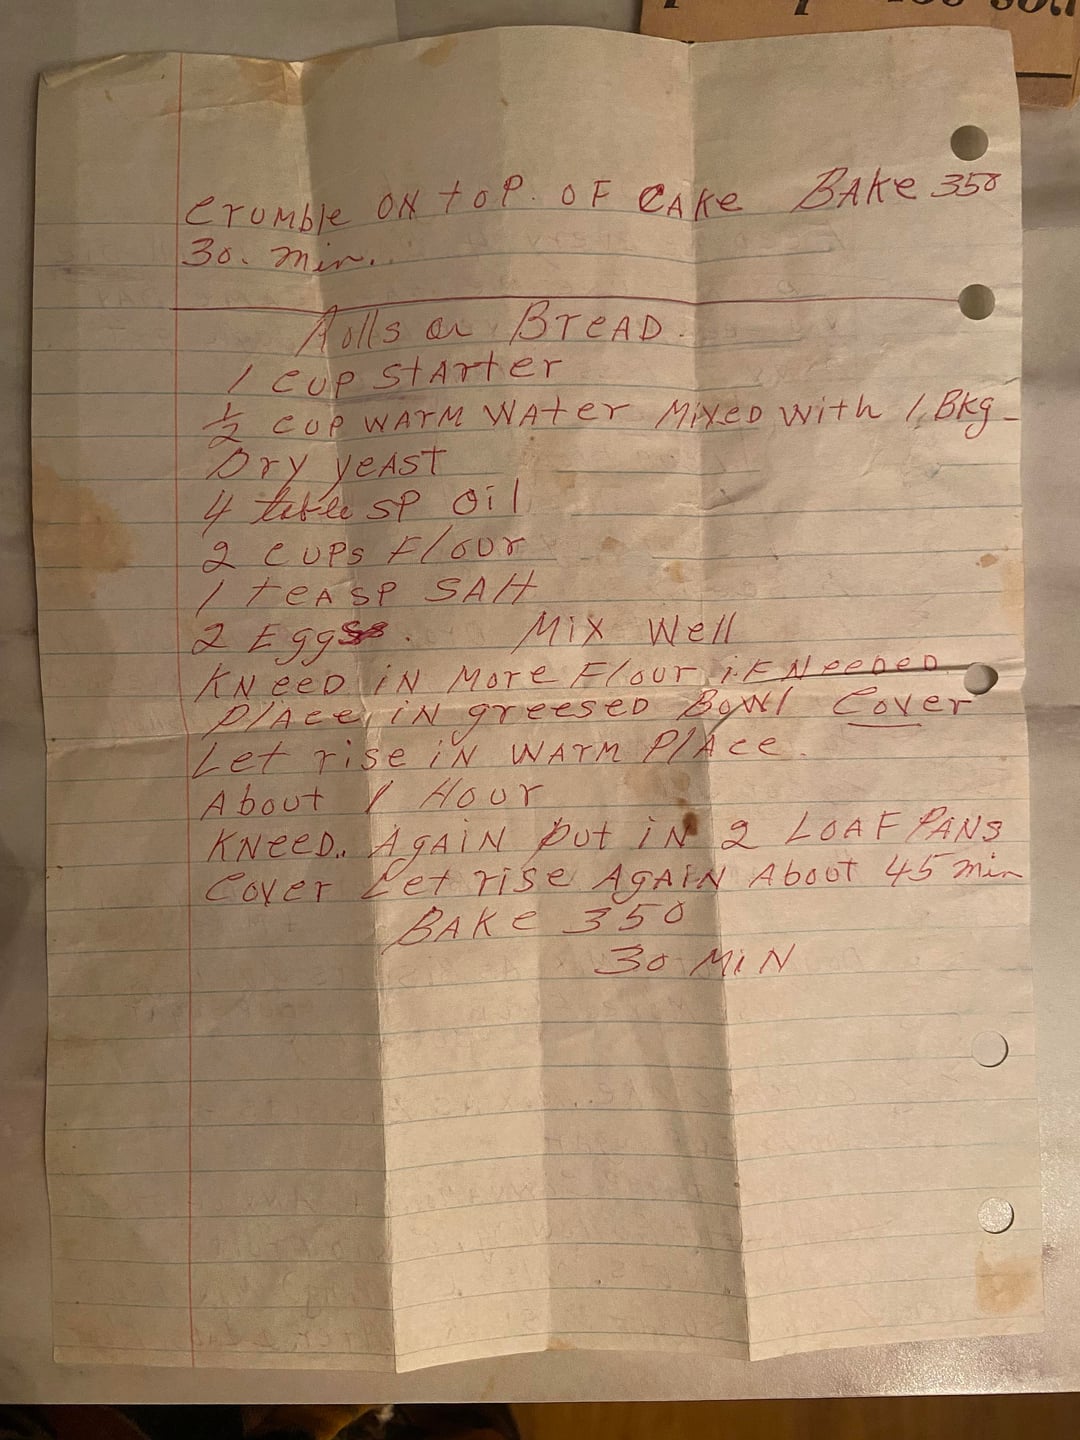 Crumble on top. of Cake Bake 350
30. min.
Rolls or Bread.
1 cup starter
½ cup warm water mixed with 1 Bkg
Dry yeast
4 table sp oil
2 cups flour
1 teasp salt
2 Eggs. Mix well
Kneed in more flour if needed
Place in greesed Bowl Cover
Let rise in warm place.
About 1 Hour
Kneed.. Again put in 2 Loaf Pans
Cover Let rise Again About 45 min
Bake 350
30 Min